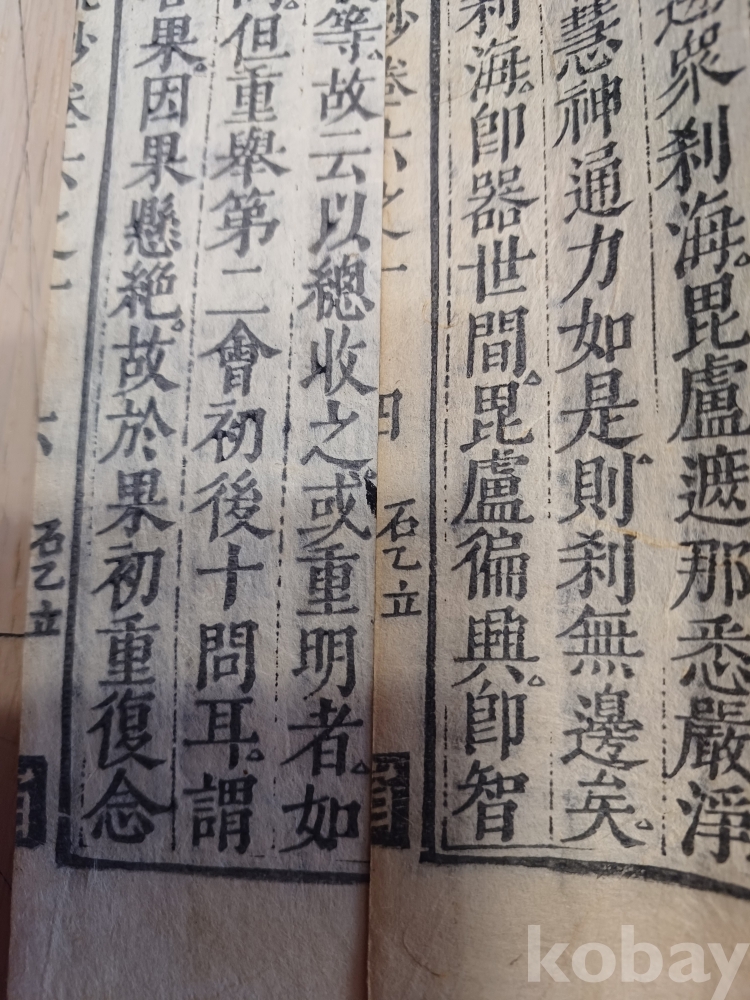 衆刹海。毘盧遮那悉嚴淨
慧神通力如是則刹無邊矣。
刹海。即器世間。毘盧徧興。即智
鈔卷六之一
四
石乙立
等。故云以總收之。或重明者。如
但重舉第二會初後十問耳。謂
果。因果懸絶。故於果初重復念
鈔卷六之一
六
石乙立
kobay